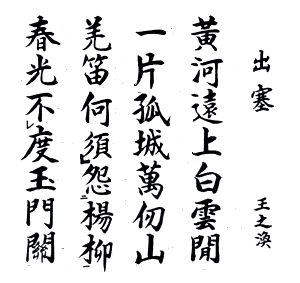 出塞
王之渙
黃河遠上白雲閒
一片孤城萬仞山
羌笛何須怨楊柳
春光不度玉門關